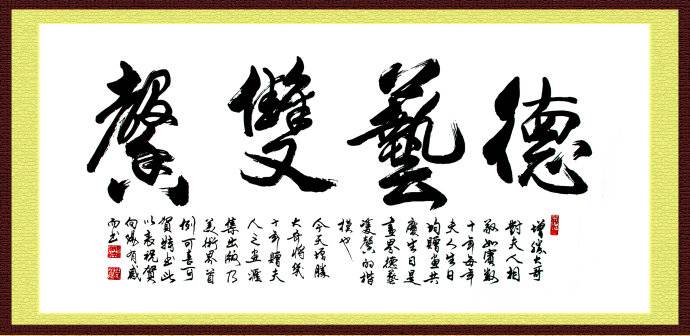 德藝雙馨
增勝大哥
對夫人相
敬如賓數
十年每年
夫人生日
均贈畫共
慶生日是
畫界德藝
雙馨的楷
模也
今天增勝
大哥將幾
十年贈夫
人之畫匯
集出版乃
美術界首
例可喜可
賀特書此
以表祝賀
向陽有感
而書